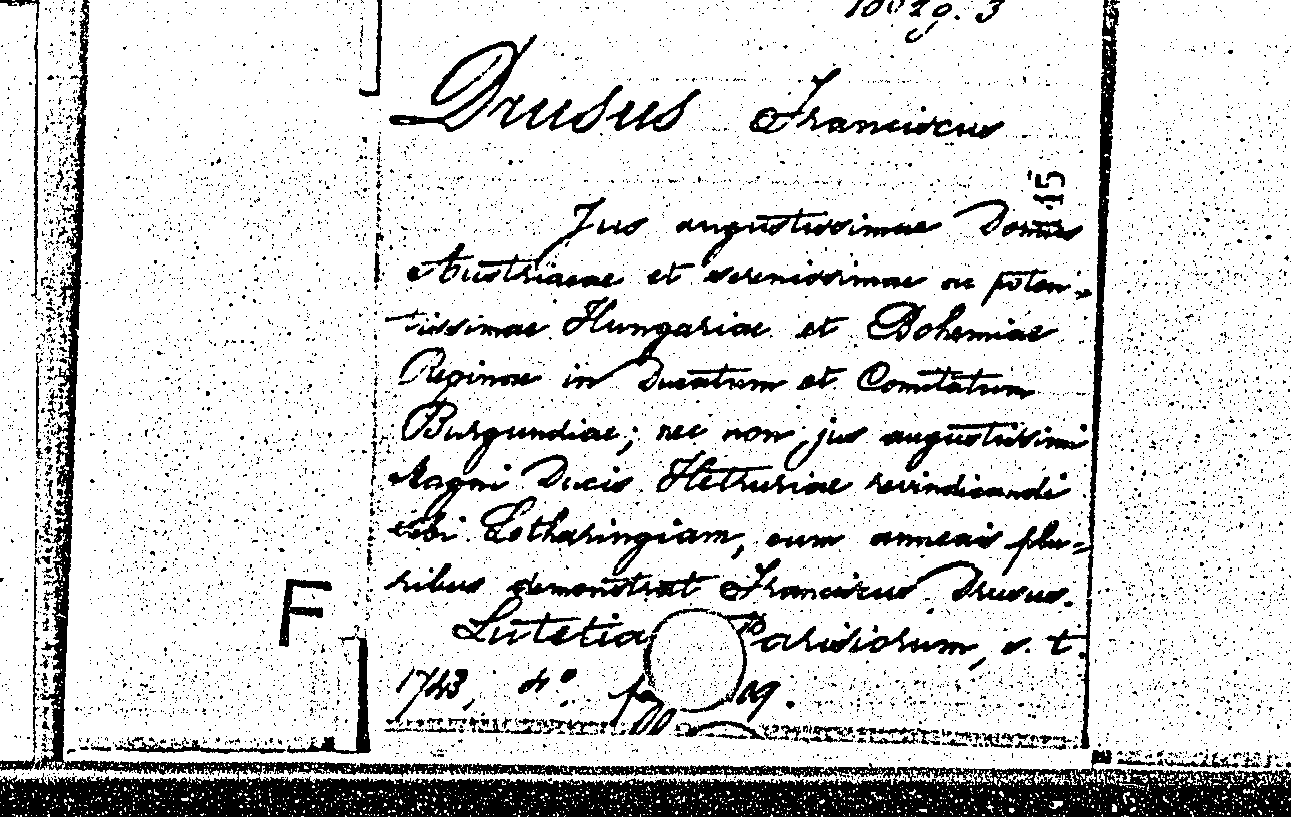 Drusus Franciscus
145
Jus augustissimae Domus
Austriacae et serenissimae ac poten-
tissimae Hungariae et Bohemiae
Reginae in Ducatum et Comitatum
Burgundiae; nec non jus augustissimi
Magni Ducis Hetruriae revindicandi
sibi Lotharingiam, cum annexis plu-
ribus demonstrat Franciscus Drusus.
Lutetia Parisiorum, s. t.
1743, 4°.
F